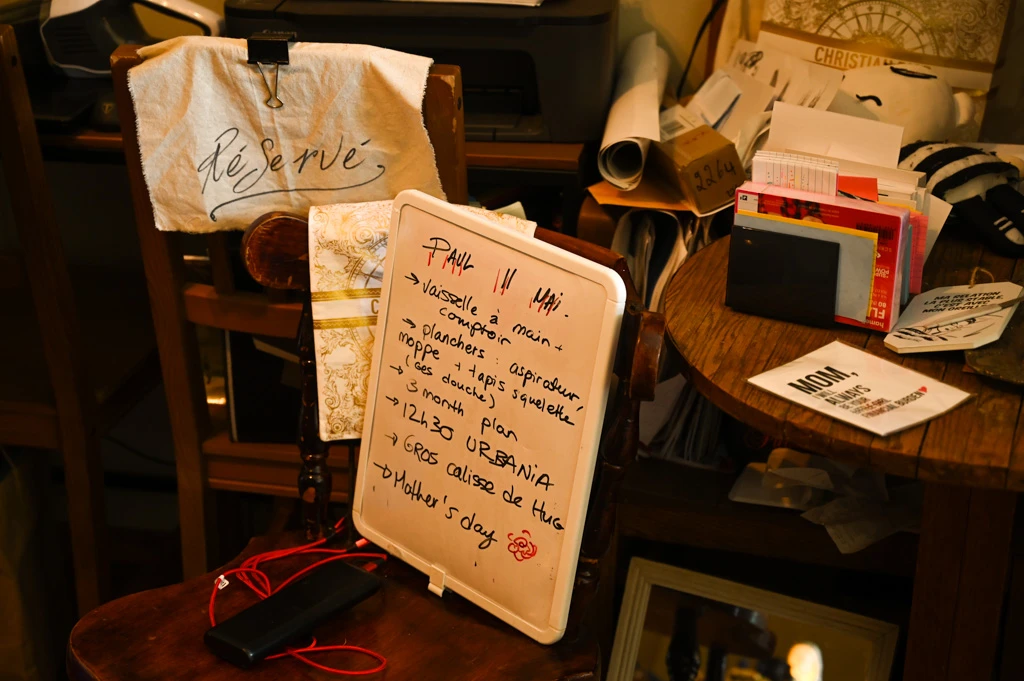 RéSeRVé
PAUL 11 MAi.
→ vaisselle à main +
comptoir
→ planchers : aspirateur,
moppe + tapis squelette
(Ges douche)
→ 3 month plan
→ 12h30 URBANiA
→ GROS calisse de Hug
→ Mother's day
CHRISTIAN
2264
MOM,
ALWAYS
MON